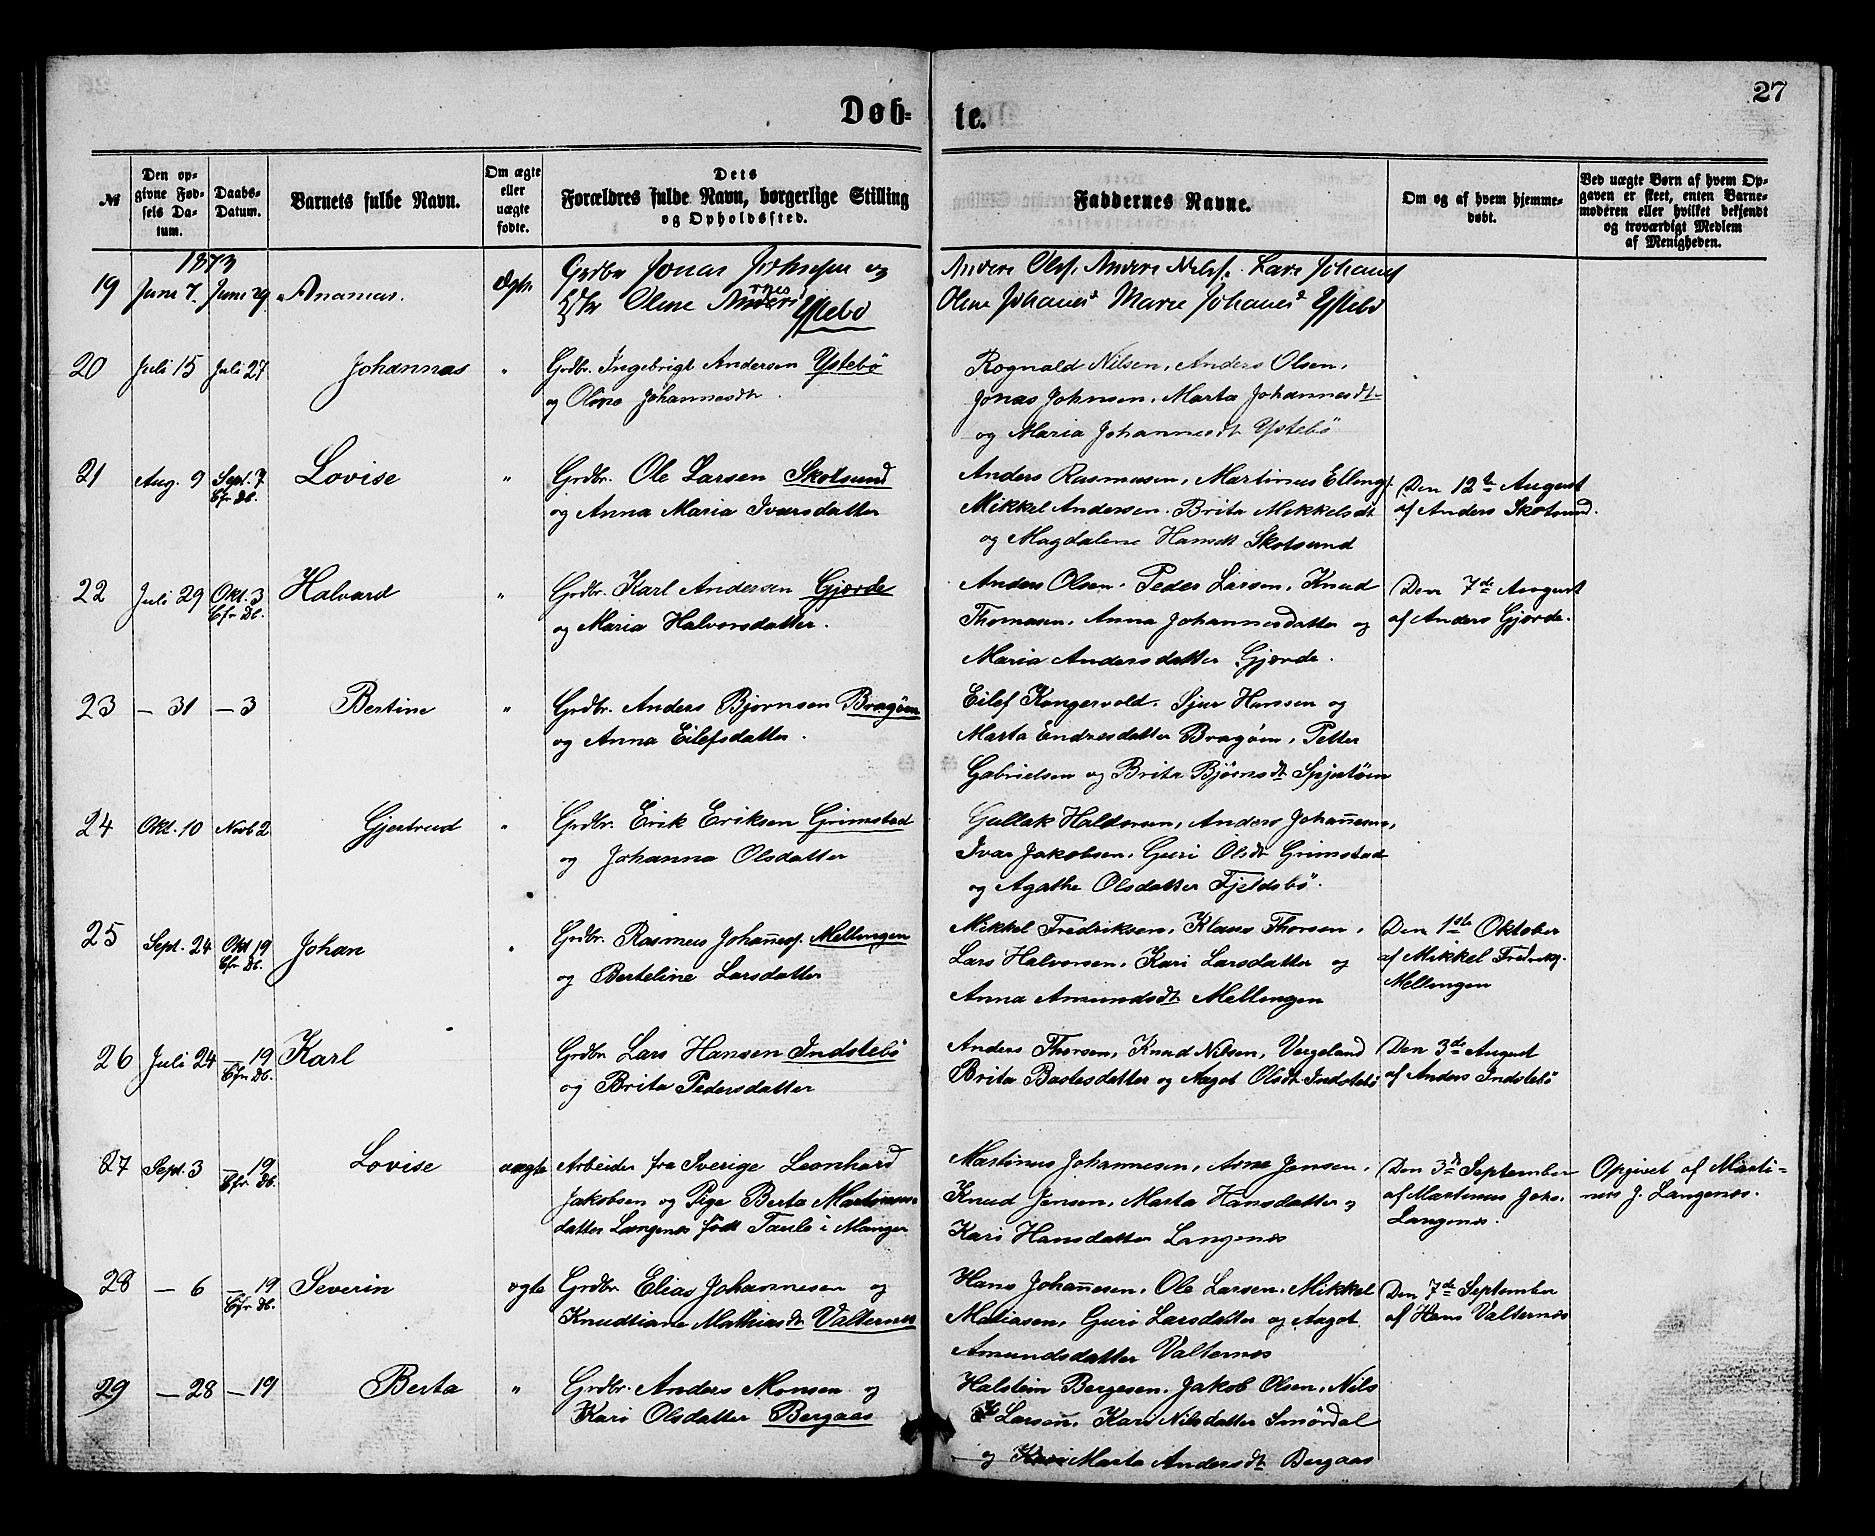 27
Døb-
te.
№
Den op-
givne Fød-
sels Da-
tum.
Daabs-
Datum.
Barnets fulde Navn.
Om ægte
eller
uægte
fødte.
Dets
Forældres fulde Navn, borgerlige Stilling
og Opholdssted.
Faddernes Navne.
Om og af hvem hjemme-
døbt.
Ved uægte Børn af hvem Op-
gaven er skeet, enten Barne-
moderen eller hvilket bekjendt
og troværdigt Medlem
af Menigheden.
1873
19 Juni 7. Juni 29 Ananias. Ægte Grdbr Jonas Johnsen og
Olene Anders Ystebø
Anders Olsf. Anders Nilsf. Lars Johanes
Olene Johanesd Marie Johanesd Ystebø
20 Juli 15 Juli 27 Johannas " Grdbr. Ingebrigt Andersen Ystebö
og Olene Johannesdtr.
Rognald Nilsen, Anders Olsen,
Jonas Johnsen, Marta Johannesdt
og Maria Johannesdt Ystebö
21 Aug. 9 Sept. 7 Cfr. Db. Lovise " Grdbr. Ole Larsen Skotsund
og Anna Maria Ivarsdatter
Anders Rasmusen, Martinus Ellingf.
Mikkel Andersen. Brita Mikkelsdt
og Magdalene Hansdt Skotsund
Den 12te August
af Anders Skotsund.
22 Juli 29 Okt. 3 Cfr. Db. Halvard " Grdbr. Karl Andersen Gjerde
og Maria Halvorsdatter.
Anders Olsen. Peder Larsen, Knud
Thomasen, Anna Johannesdatter og
Maria Andersdatter Gjerde.
Den 7de August
af Anders Gjerde.
23 — 31 — 3 Bertine " Grdbr. Anders Bjørnsen Bragöen
og Anna Eilefsdatter.
Eilef Kongsvold. Sjur Hansen og
Marta Endresdatter Bragöen, Petter
Gabrielsen og Brita Bjørnsdt Spjutöen
24 Okt. 10 Novb 2 Gjertrud " Grdbr. Erik Eriksen Grimstad
og Johanna Olsdatter
Gullak Haldorsen, Anders Johannesen,
Ivar Jakobsen, Guri Olsdt Grimstad
og Agathe Olsdatter Fjeldsbö.
25 Sept. 24 Okt 19 Cfr. Db. Johan " Grdbr. Rasmus Johannesf. Mellingen
og Berteline Larsdatter
Mikkel Fredriksen, Klaus Thorsen,
Lars Halvorsen, Kari Larsdatter og
Anna Amundsdt Mellingen
Den 1ste Oktober
af Mikkel Fredriks.
Mellingen
26 Juli 24 — 19 Cfr. Db. Karl Grdbr Lars Hansen Indstebö
og Brita Pedersdatter
Anders Thorsen, Knud Nilsen, Vergeland
Brita Bastesdatter og Aagot Olsdt Indstebö
Den 3de August
af Anders Indstebö
27 Sept. 3 — 19 Cfr. Db. Lovise uægte Arbeider fra Sverige Leonhard
Jakobsen og Pige Berta Martinus-
datter Langenes født Taule i Manger
Martinus Johannesen, Arne Jensen,
Knud Jensen, Marta Hansdatter og
Kari Hansdatter Langenes
Den 3de September
af Martinus Johs.
Langenes.
Opgivet af Marti-
nus J. Langenes.
28 — 6 — 19 Cfr. Db. Severin ægte Grdbr. Elias Johannesen og
Knudtiane Mathiasdt Valternes
Hans Johannesen, Ole Larsen, Mikkel
Matiasen, Guri Larsdatter og Aagot
Amundsdatter Valternes
Den 7de September
af Hans Valternes
29 — 28 — 19 Berta " Grdbr. Anders Monsen og
Kari Olsdatter Bergaas
Halstein Bergesen, Jakob Olsen, Nils
Larsen, Kari Nilsdatter Smördal
og Marta Andersdt Bergaas